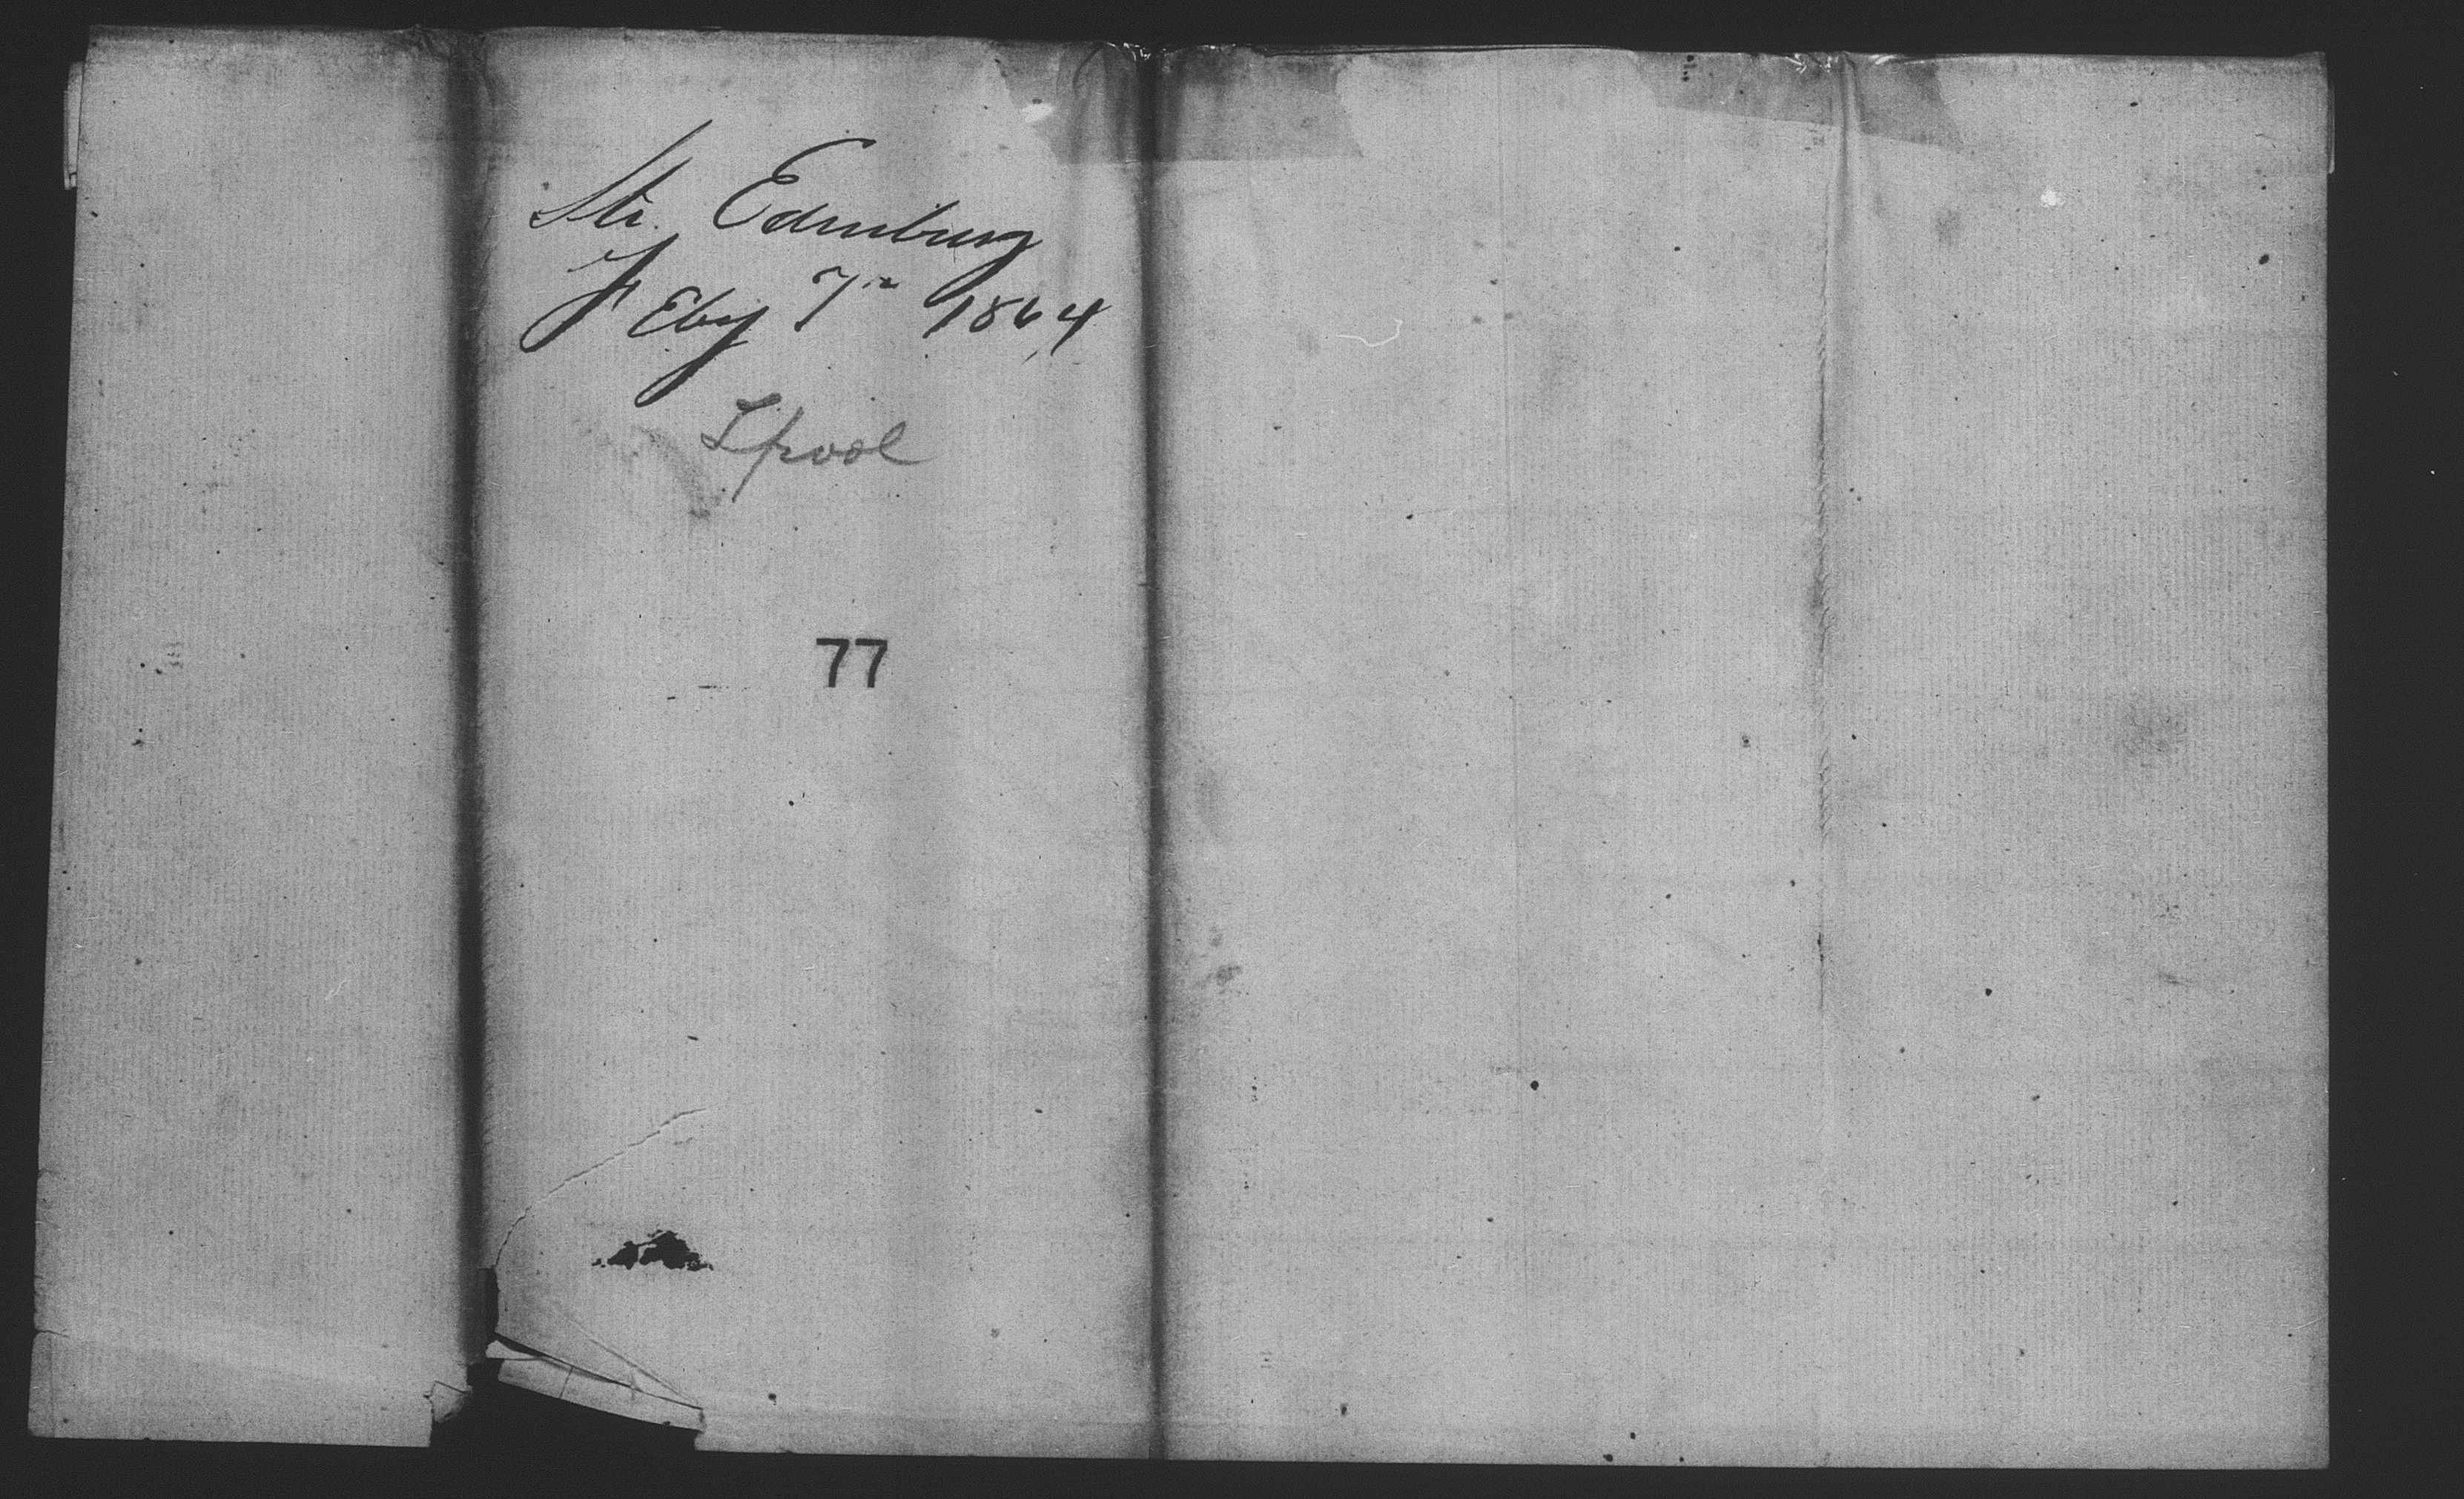 Str. Edinburg
FEby 7th 1864
Lpool
77